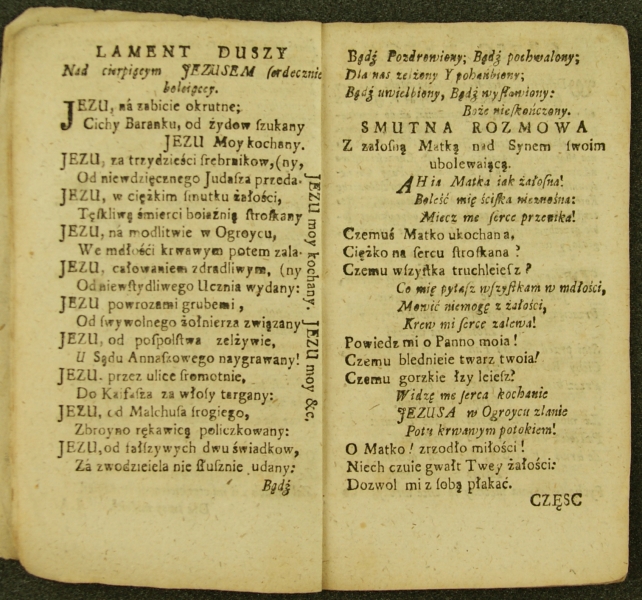 LAMENT DUSZY
Nad cierpiącym JEZUSEM ſerdecznie
boleiącey.
JEZU, ná zabicie okrutne;
Cichy Baranku, od żydow ſzukany
JEZU Moy kochany.
JEZU, za trzydzieści ſrebrnikow, (ny,
Od niewdzięcznego Judaſza przeda-
JEZU, w ciężkim ſmutku żáłości,
Tęſkliwę śmierci boiaźnią ſtroſkany
JEZU, ná modlitwie w Ogroycu,
We mdłości krwawym potem zala-
JEZU, całowaniem zdradliwym, (ny
Od niewſtydliwego Ucznia wydany:
JEZU powrozami grubemi,
Od ſwywolnego żołnierza związany
JEZU, od poſpolſtwa zelżywie,
U Sądu Annaſzowego naygrawany!
JEZU. przez ulice ſromotnie,
Do Kaifaſza za włoſy targany:
JEZU, od Malchuſa ſrogiego,
Zbroyno rękawicą policzkowany:
JEZU, od fałſzywych dwu świadkow,
Zá zwodziciela nie ſłuſznie udany:
Bądź
JEZU moy kochany. JEZU moy &c,
Bądź Pozdrowiony; Bądź pochwalony;
Dla nas zelżony Y pohańbiony;
Bądź uwielbiony, Bądź wyſławiony:
Boże nieſkończony.
SMUTNA ROZMOWA
Z załoſną Matką nad Synem ſwoim
ubolewaiącą.
AH ia Matka iak żałoſna!
Boleść mię ściſka nieznoſna:
Miecz me ſerce przenika!
Czemuś Matko ukochana,
Ciężko na ſercu ſtroſkana?
Czemu wſzyſtka truchleieſz?
Co mię pytaſz wſzyſtkam w mdłości,
Mowić niemogę z żałości,
Krew mi ſerce zalewa!
Powiedz mi o Panno moia!
Czemu blednieie twarz twoia!
Czemu gorzkie łzy leieſz?
Widzę me ſerca kochanie
JEZUSA w Ogroycu zlanie
Potu krwawym potokiem!
O Matko! zrzodło miłości!
Niech czuie gwałt Twey żáłości:
Dozwol mi z ſobą płakać.
CZĘSC